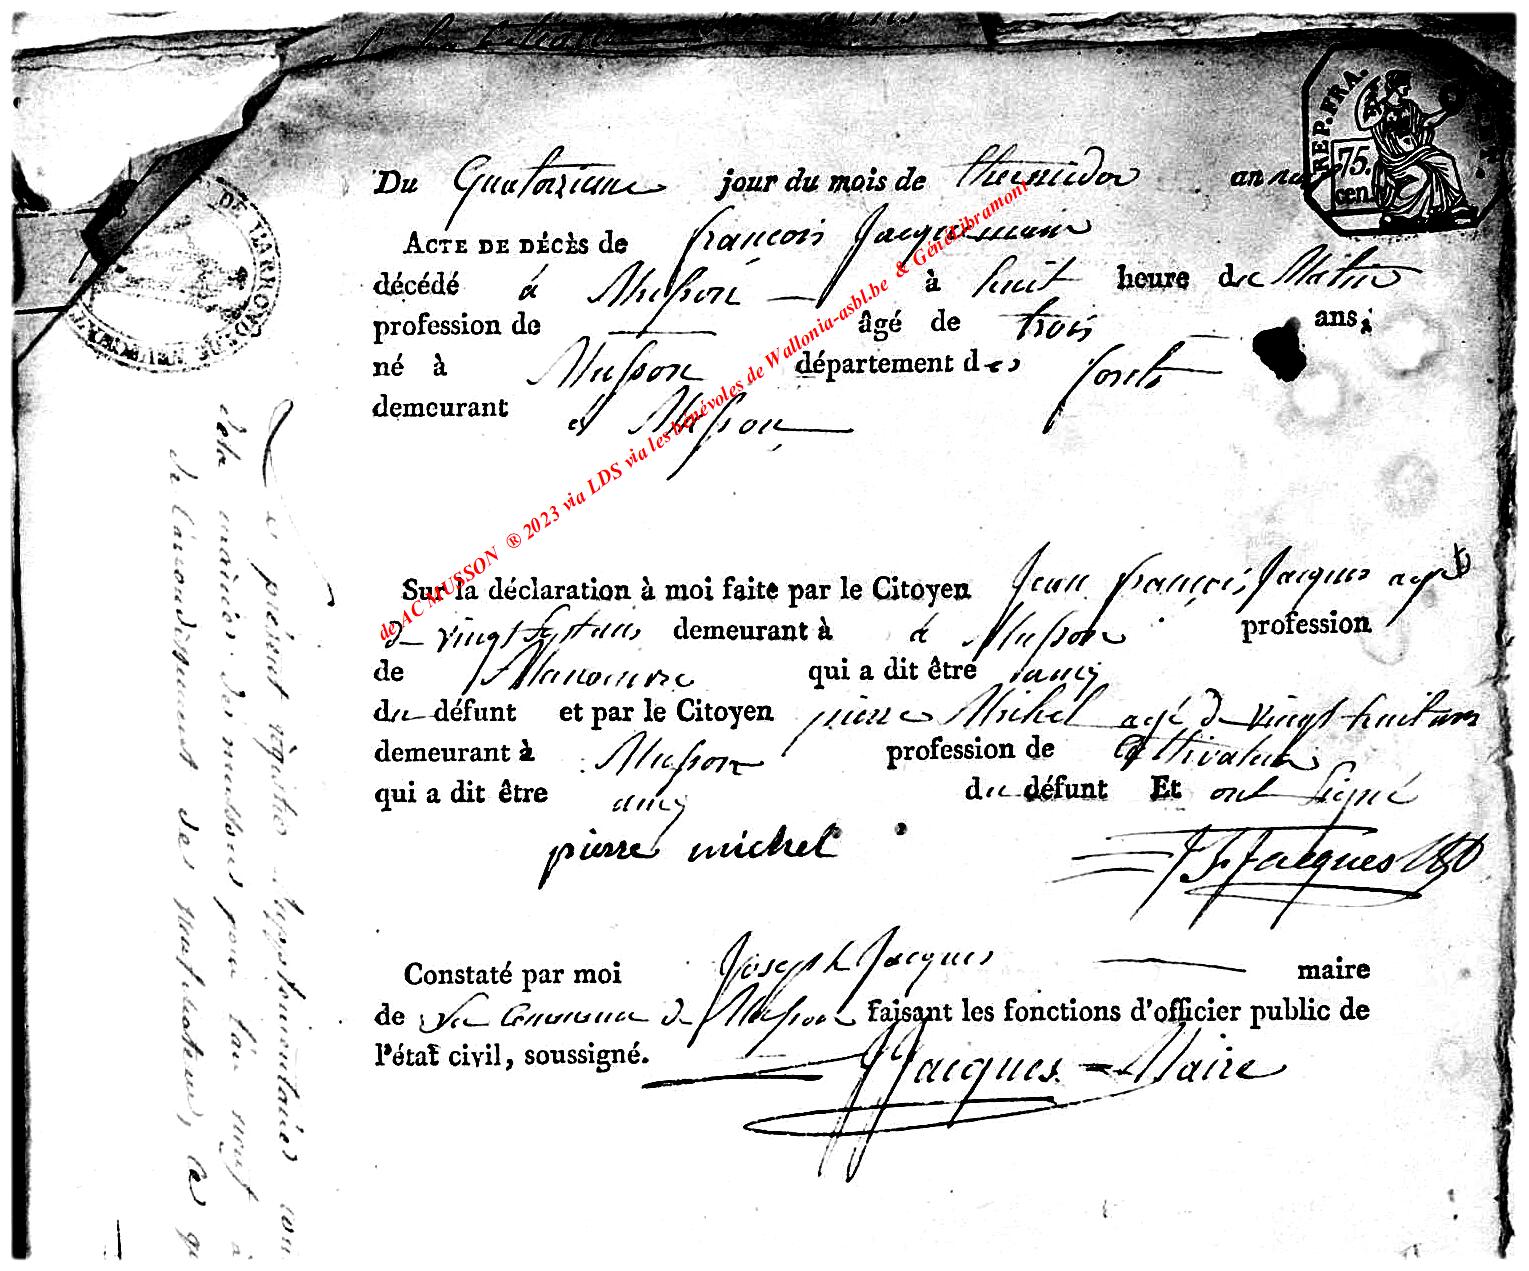 REP. FRA.
75.
cen.
DE L'ARROND. DE NEUFCHAT
Du Quatorzieme jour du mois de thermidor an
ACTE DE DÉCÈS de françois Jacquemain
décédé à Musson à huit heure du Matin
profession de âgé de trois ans;
né à Musson département des forets
demeurant à Musson
Sur la déclaration à moi faite par le Citoyen Jean françois Jacques agé
de vingt sept ans demeurant à à Musson profession
de Manoeuvre qui a dit être amij
du défunt et par le Citoyen pierre Michel agé de vingt huit ans
demeurant à Musson profession de Cultivateur
qui a dit être amij du défunt Et ont Signé
pierre michel
J F Jacques
Constaté par moi Joseph Jacques maire
de La Commune de Musson faisant les fonctions d'officier public de
l'état civil, soussigné.
J Jacques Maire
Le présent régistre supplémentaires
des mairies des musson pour l'an neuf à
de l'arrondissement des neufchateau, ce
de AC MUSSON ® 2023 via LDS via les bénévoles de Wallonia-asbl.be & GénéLibramont